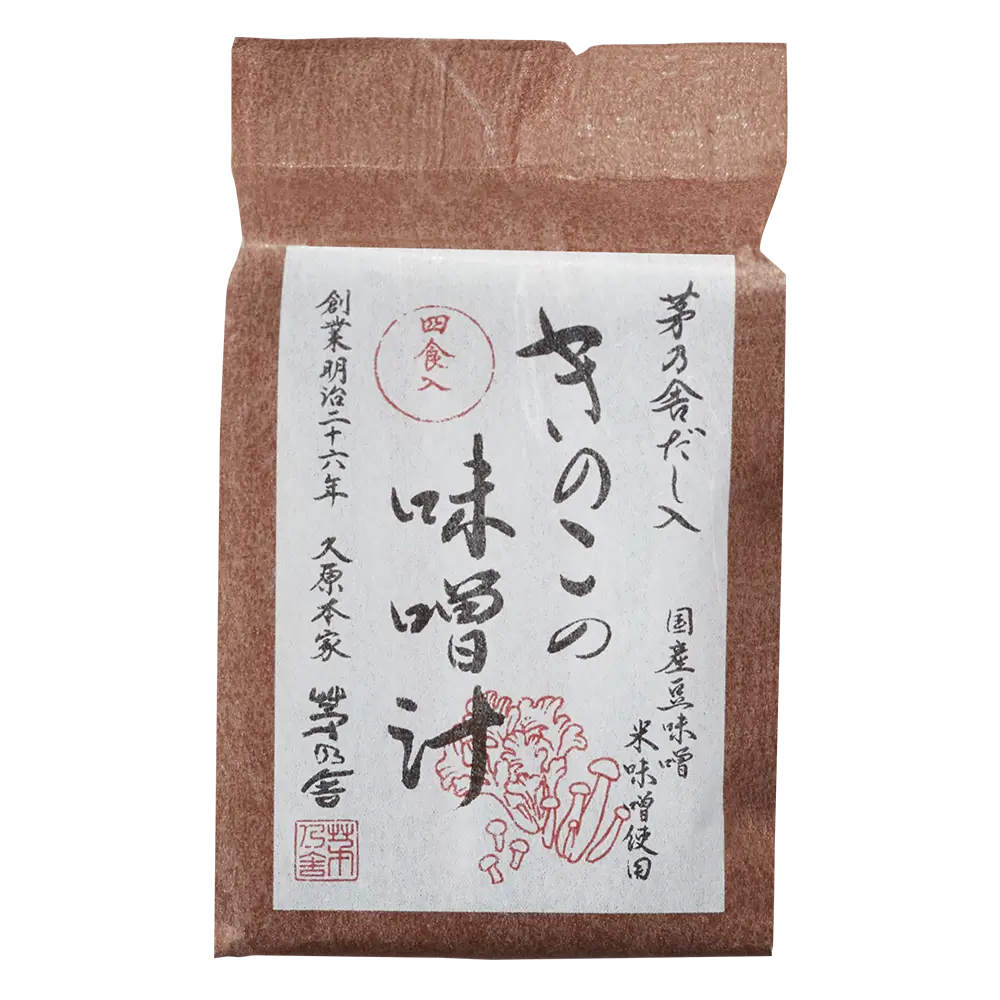 茅乃舎だし入
国産豆味噌
米味噌使用
きのこの
味噌汁
四食入
創業明治二十六年 久原本家 茅乃舎
茅乃舎